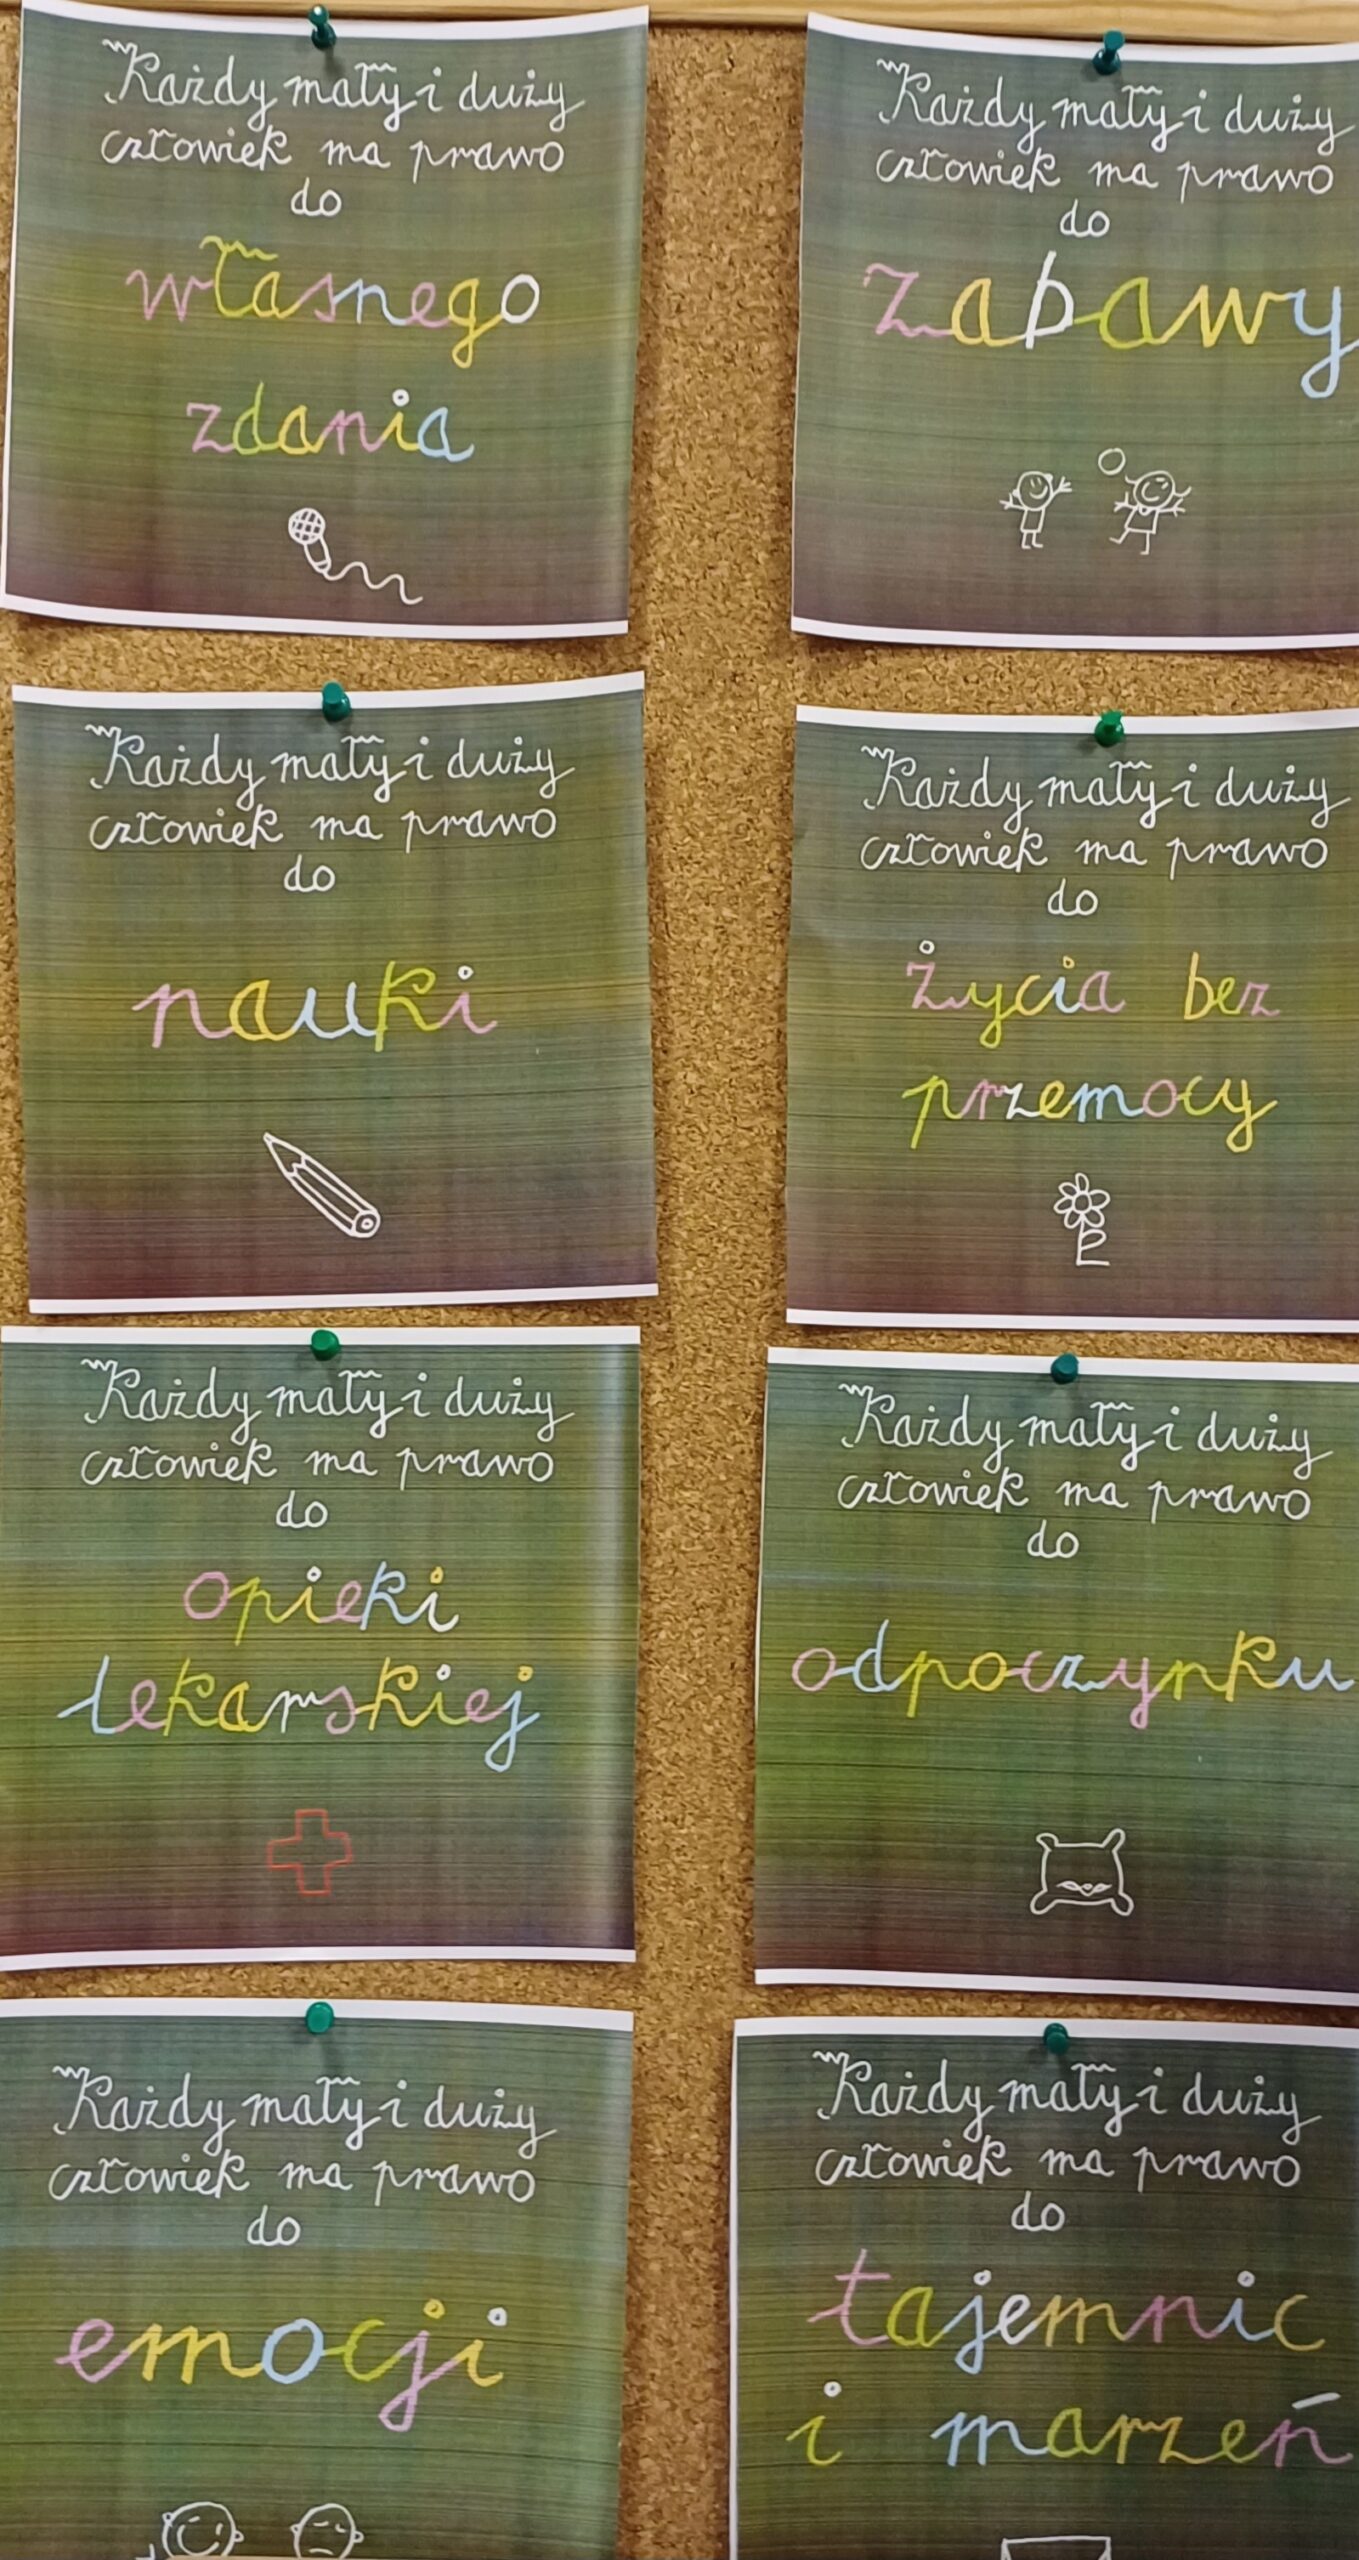 Każdy mały i duży
człowiek ma prawo
do
własnego
zdania
Każdy mały i duży
człowiek ma prawo
do
zabawy
Każdy mały i duży
człowiek ma prawo
do
nauki
Każdy mały i duży
człowiek ma prawo
do
życia bez
przemocy
Każdy mały i duży
człowiek ma prawo
do
opieki
lekarskiej
Każdy mały i duży
człowiek ma prawo
do
odpoczynku
Każdy mały i duży
człowiek ma prawo
do
emocji
Każdy mały i duży
człowiek ma prawo
do
tajemnic
i marzeń